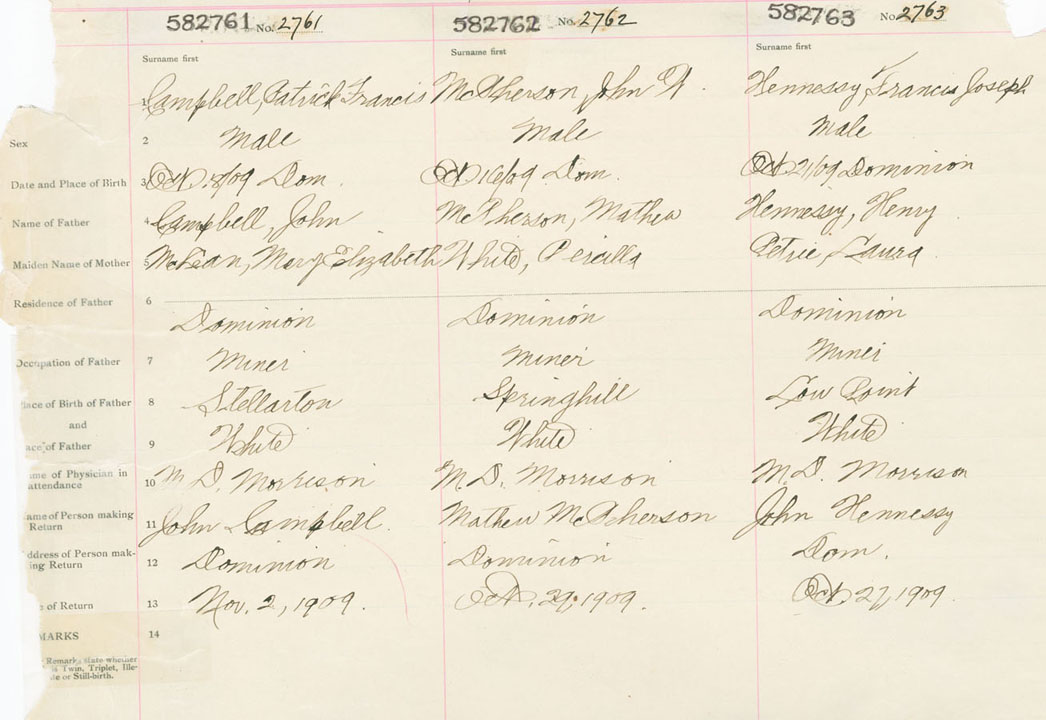 582761 No. 2761 582762 No. 2762 582763 No. 2763
Surname first Surname first Surname first
1 Campbell, Patrick Francis McPherson, John W. Hennessy, Francis Joseph
Sex 2 Male Male Male
Date and Place of Birth 3 Oct. /09 Dom. Oct 16/09 Dom. Oct 21/09 Dominion
Name of Father 4 Campbell, John McPherson, Mathew Hennessy, Henry
Maiden Name of Mother 5 McLean, Mary Elizabeth White, Percilla Petrie, Laura
Residence of Father 6 Dominion Dominion Dominion
Occupation of Father 7 Miner Miner Miner
lace of Birth of Father 8 Stellarton Springhill Low Point
and
ace of Father 9 White White White
me of Physician in
attendance 10 M. D. Morrison M. D. Morrison M. D. Morrison
ame of Person making
Return 11 John Campbell. Mathew McPherson John Hennessy
ddress of Person mak-
ing Return 12 Dominion Dominion Dom.
e of Return 13 Nov. 2, 1909. Oct. 29, 1909. Oct. 27, 1909.
MARKS 14
Remarks state whether
is Twin, Triplet, Ille-
te or Still-birth.